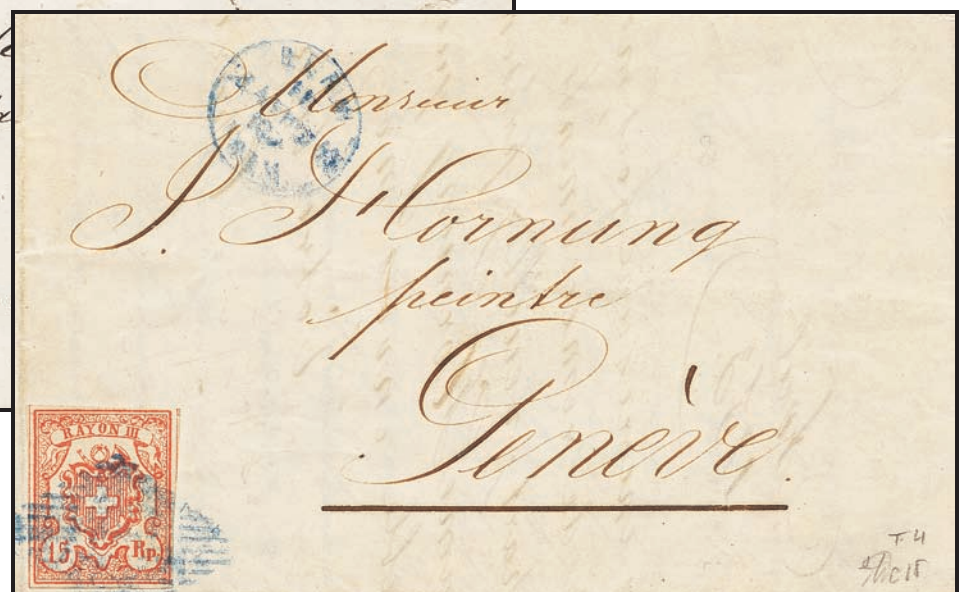 Monsieur
J. Hornung
peintre
Genève.
RAYON III
15 Rp.
T. 4